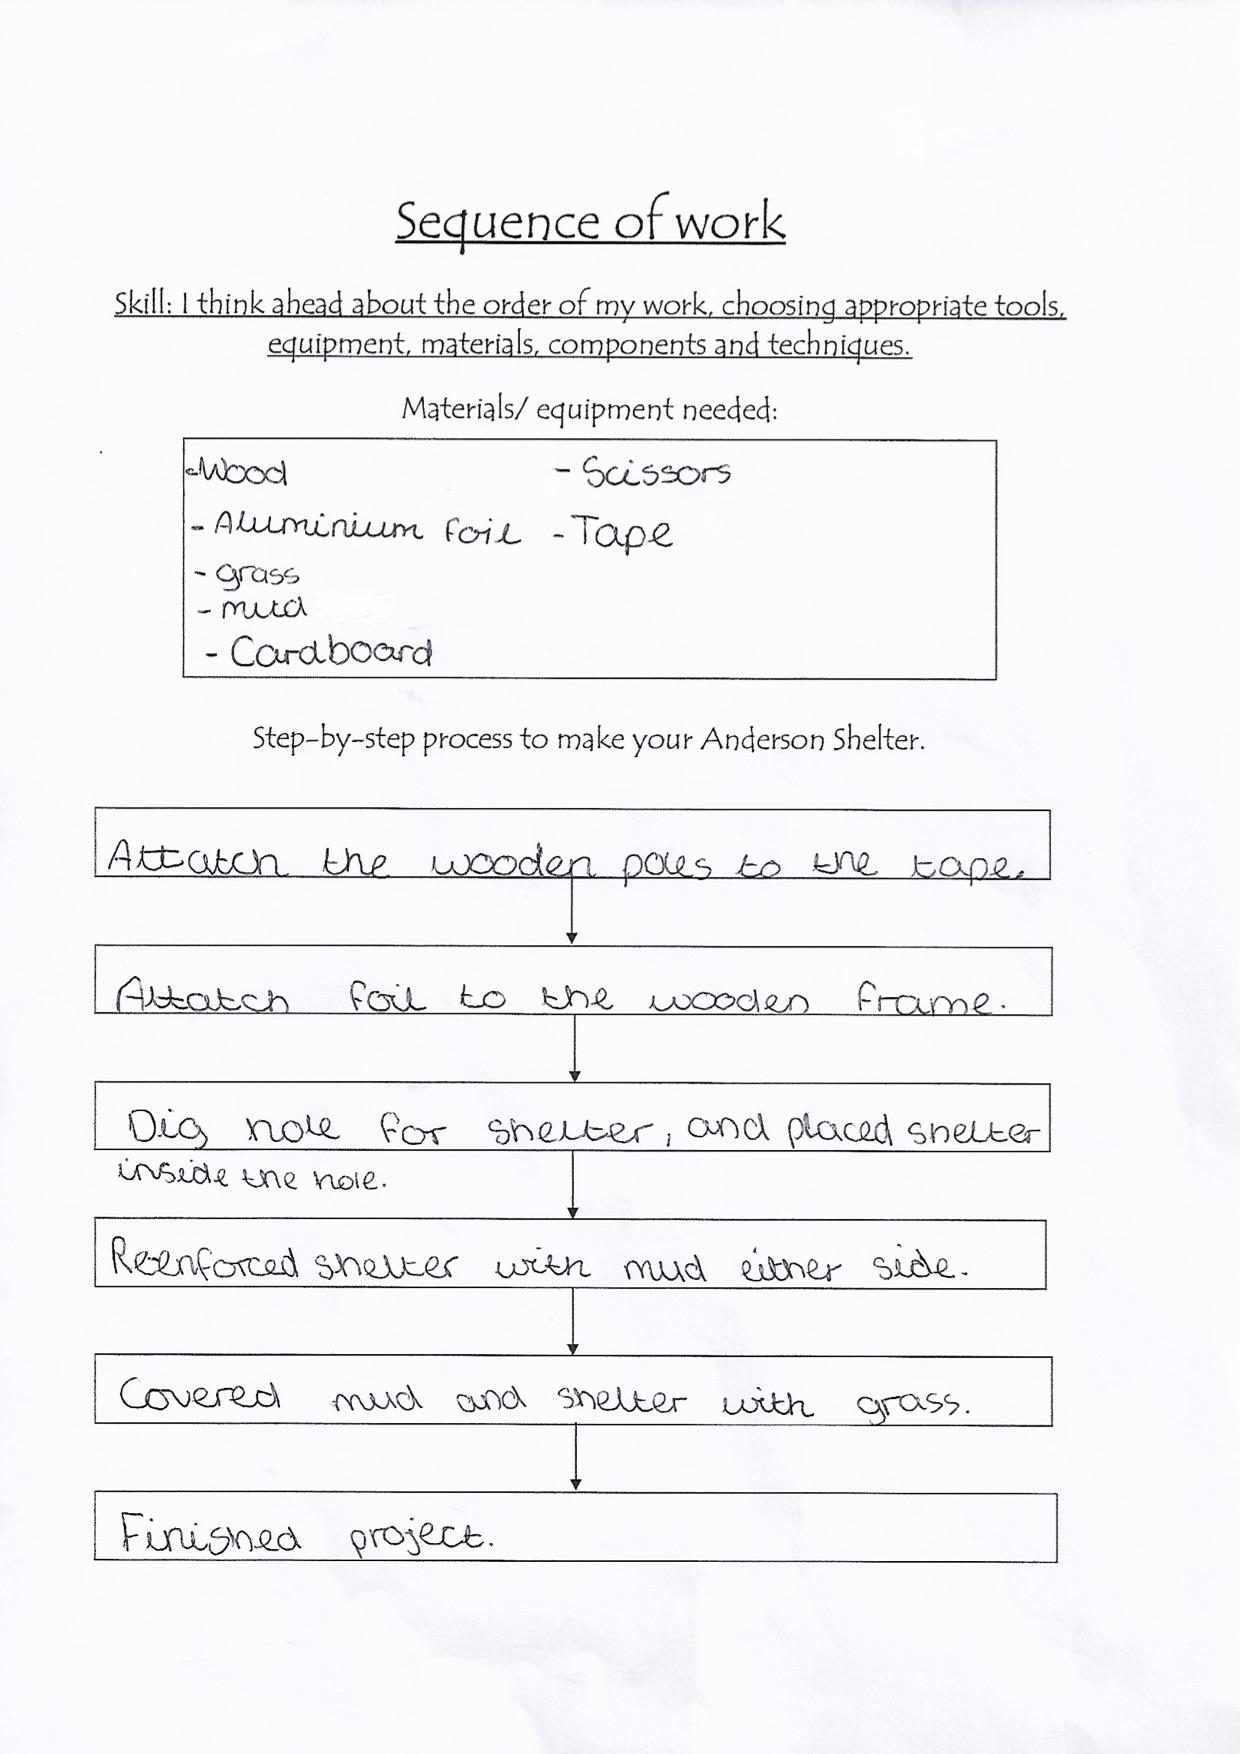 Sequence of work
Skill: I think ahead about the order of my work, choosing appropriate tools,
equipment, materials, components and techniques.
Materials/ equipment needed:
-Wood - Scissors
- Aluminium foil - Tape
- grass
- mud
- Cardboard
Step-by-step process to make your Anderson Shelter.
Attatch the wooden poles to the tape.
Attatch foil to the wooden frame.
Dig hole for shelter, and placed shelter
inside the hole.
Reenforced shelter with mud either side.
Covered mud and shelter with grass.
Finished project.